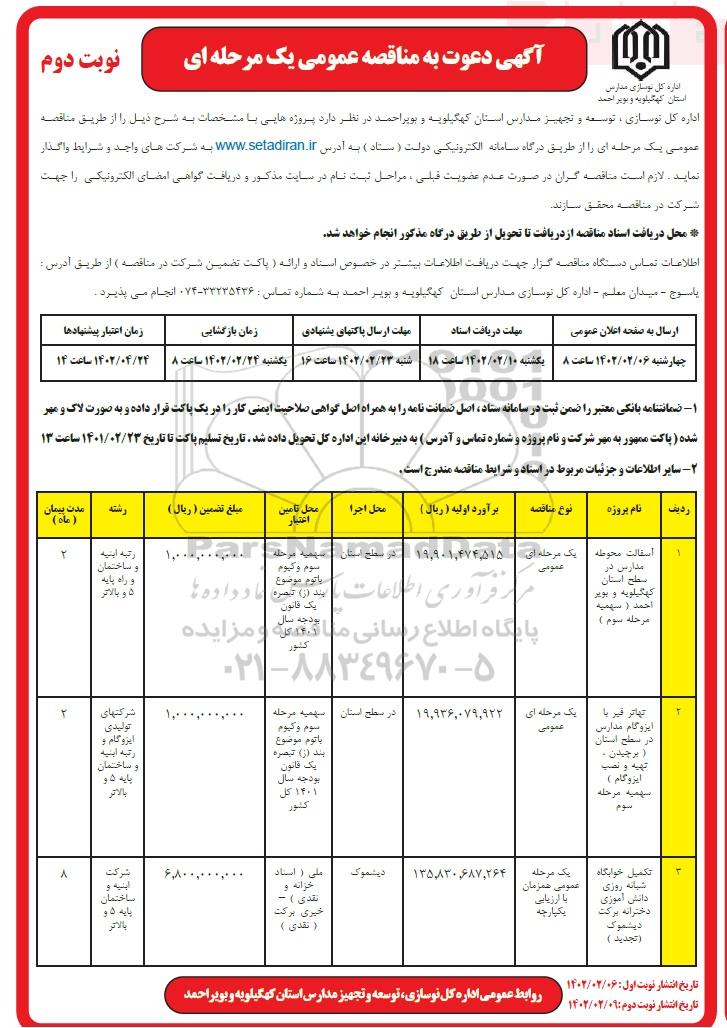 اداره کل نوسازی مدارس
استان کهگیلویه و بویر احمد
آگهی دعوت به مناقصه عمومی یک مرحله ای
نوبت دوم
اداره کل نوسازی ، توسعه و تجهیز مدارس استان کهگیلویه و بویراحمد در نظر دارد پروژه هایی با مشخصات به شرح ذیل را از طریق مناقصه
عمومی یک مرحله ای را از طریق درگاه سامانه الکترونیکی دولت ( ستاد ) به آدرس www.setadiran.ir به شرکت های واجد و شرایط واگذار
نماید . لازم است مناقصه گران در صورت عدم عضویت قبلی ، مراحل ثبت نام در سایت مذکور و دریافت گواهی امضای الکترونیکی را جهت
شرکت در مناقصه محقق سازند.
* محل دریافت اسناد مناقصه ازدریافت تا تحویل از طریق درگاه مذکور انجام خواهد شد.
اطلاعات تماس دستگاه مناقصه گزار جهت دریافت اطلاعات بیشتر در خصوص اسناد و ارائه ( پاکت تضمین شرکت در مناقصه ) از طریق آدرس :
یاسوج - میدان معلم - اداره کل نوسازی مدارس استان کهگیلویه و بویر احمد به شماره تماس : ۳۳۲۳۵۴۳۶-۰۷۴ انجام می پذیرد .
ارسال به صفحه اعلان عمومی	مهلت دریافت اسناد	مهلت ارسال پاکتهای پشنهادی	زمان بازگشایی	زمان اعتبار پیشنهادها
چهارشنبه ۱۴۰۲/۰۲/۰۶ ساعت ۸	یکشنبه ۱۴۰۲/۰۲/۱۰ ساعت ۱۸	شنبه ۱۴۰۲/۰۲/۲۳ ساعت ۱۶	یکشنبه ۱۴۰۲/۰۲/۲۴ ساعت ۸	۱۴۰۲/۰۴/۲۴ ساعت ۱۴
۱- ضمانتنامه بانکی معتبر را ضمن ثبت در سامانه ستاد ، اصل ضمانت نامه را به همراه اصل گواهی صلاحیت ایمنی کار را در یک پاکت قرار داده و به صورت لاک و مهر
شده ( پاکت ممهور به مهر شرکت و نام پروژه و شماره تماس و آدرس ) به دبیرخانه این اداره کل تحویل داده شد . تاریخ تسلیم پاکت تا تاریخ ۱۴۰۱/۰۲/۲۳ ساعت ۱۳
۲- سایر اطلاعات و جزئیات مربوط در اسناد و شرایط مناقصه مندرج است .
ردیف	نام پروژه	نوع مناقصه	برآورد اولیه ( ریال )	محل اجرا	محل تامین اعتبار	مبلغ تضمین ( ریال )	رشته	مدت پیمان ( ماه )
۱	آسفالت محوطه	یک مرحله ای	۱۹,۹۰۱,۴۷۴,۵۱۵	در سطح استان	سهمیه مرحله	۱,۰۰۰,۰۰۰,۰۰۰	رتبه ابنیه	۲
مدارس در	عمومی	سوم وکیوم	و ساختمان
سطح استان	باتوم موضوع	و راه پایه
کهگیلویه و بویر	بند (ز) تبصره	۵ و بالاتر
احمد ( سهمیه	یک قانون
مرحله سوم )	بودجه سال
۱۴۰۱ کل
کشور
۲	تهاتر قیر با	یک مرحله ای	۱۹,۹۳۶,۰۷۹,۹۲۲	در سطح استان	سهمیه مرحله	۱,۰۰۰,۰۰۰,۰۰۰	شرکتهای	۲
ایزوگام مدارس	عمومی	سوم وکیوم	تولیدی
در سطح استان	باتوم موضوع	ایزوگام و
( برچیدن ،	بند (ز) تبصره	رتبه ابنیه
تهیه و نصب	یک قانون	و ساختمان
ایزوگام )	بودجه سال	پایه ۵ و
سهمیه مرحله	۱۴۰۱ کل	بالاتر
سوم	کشور
۳	تکمیل خوابگاه	یک مرحله	۱۳۵,۸۳۰,۶۸۷,۲۶۴	دیشموک	ملی ( اسناد	۶,۸۰۰,۰۰۰,۰۰۰	شرکت	۸
شبانه روزی	عمومی همزمان	خزانه و	ابنیه و
دانش آموزی	با ارزیابی	نقدی ) –	ساختمان
دخترانه برکت	یکپارچه	خیری برکت	پایه ۵ و
دیشموک	( نقدی )	بالاتر
(تجدید )
ParsNamadData
مرکز فرآوری اطلاعات پارس نماد داده ها
پایگاه اطلاع رسانی مناقصه و مزایده
۰۲۱-۸۸۳۴۹۶۷۰-۵
تاریخ انتشار نوبت اول : ۱۴۰۲/۰۲/۰۶
تاریخ انتشار نوبت دوم : ۱۴۰۲/۰۲/۰۹
روابط عمومی اداره کل نوسازی ، توسعه و تجهیز مدارس استان کهگیلویه و بویر احمد